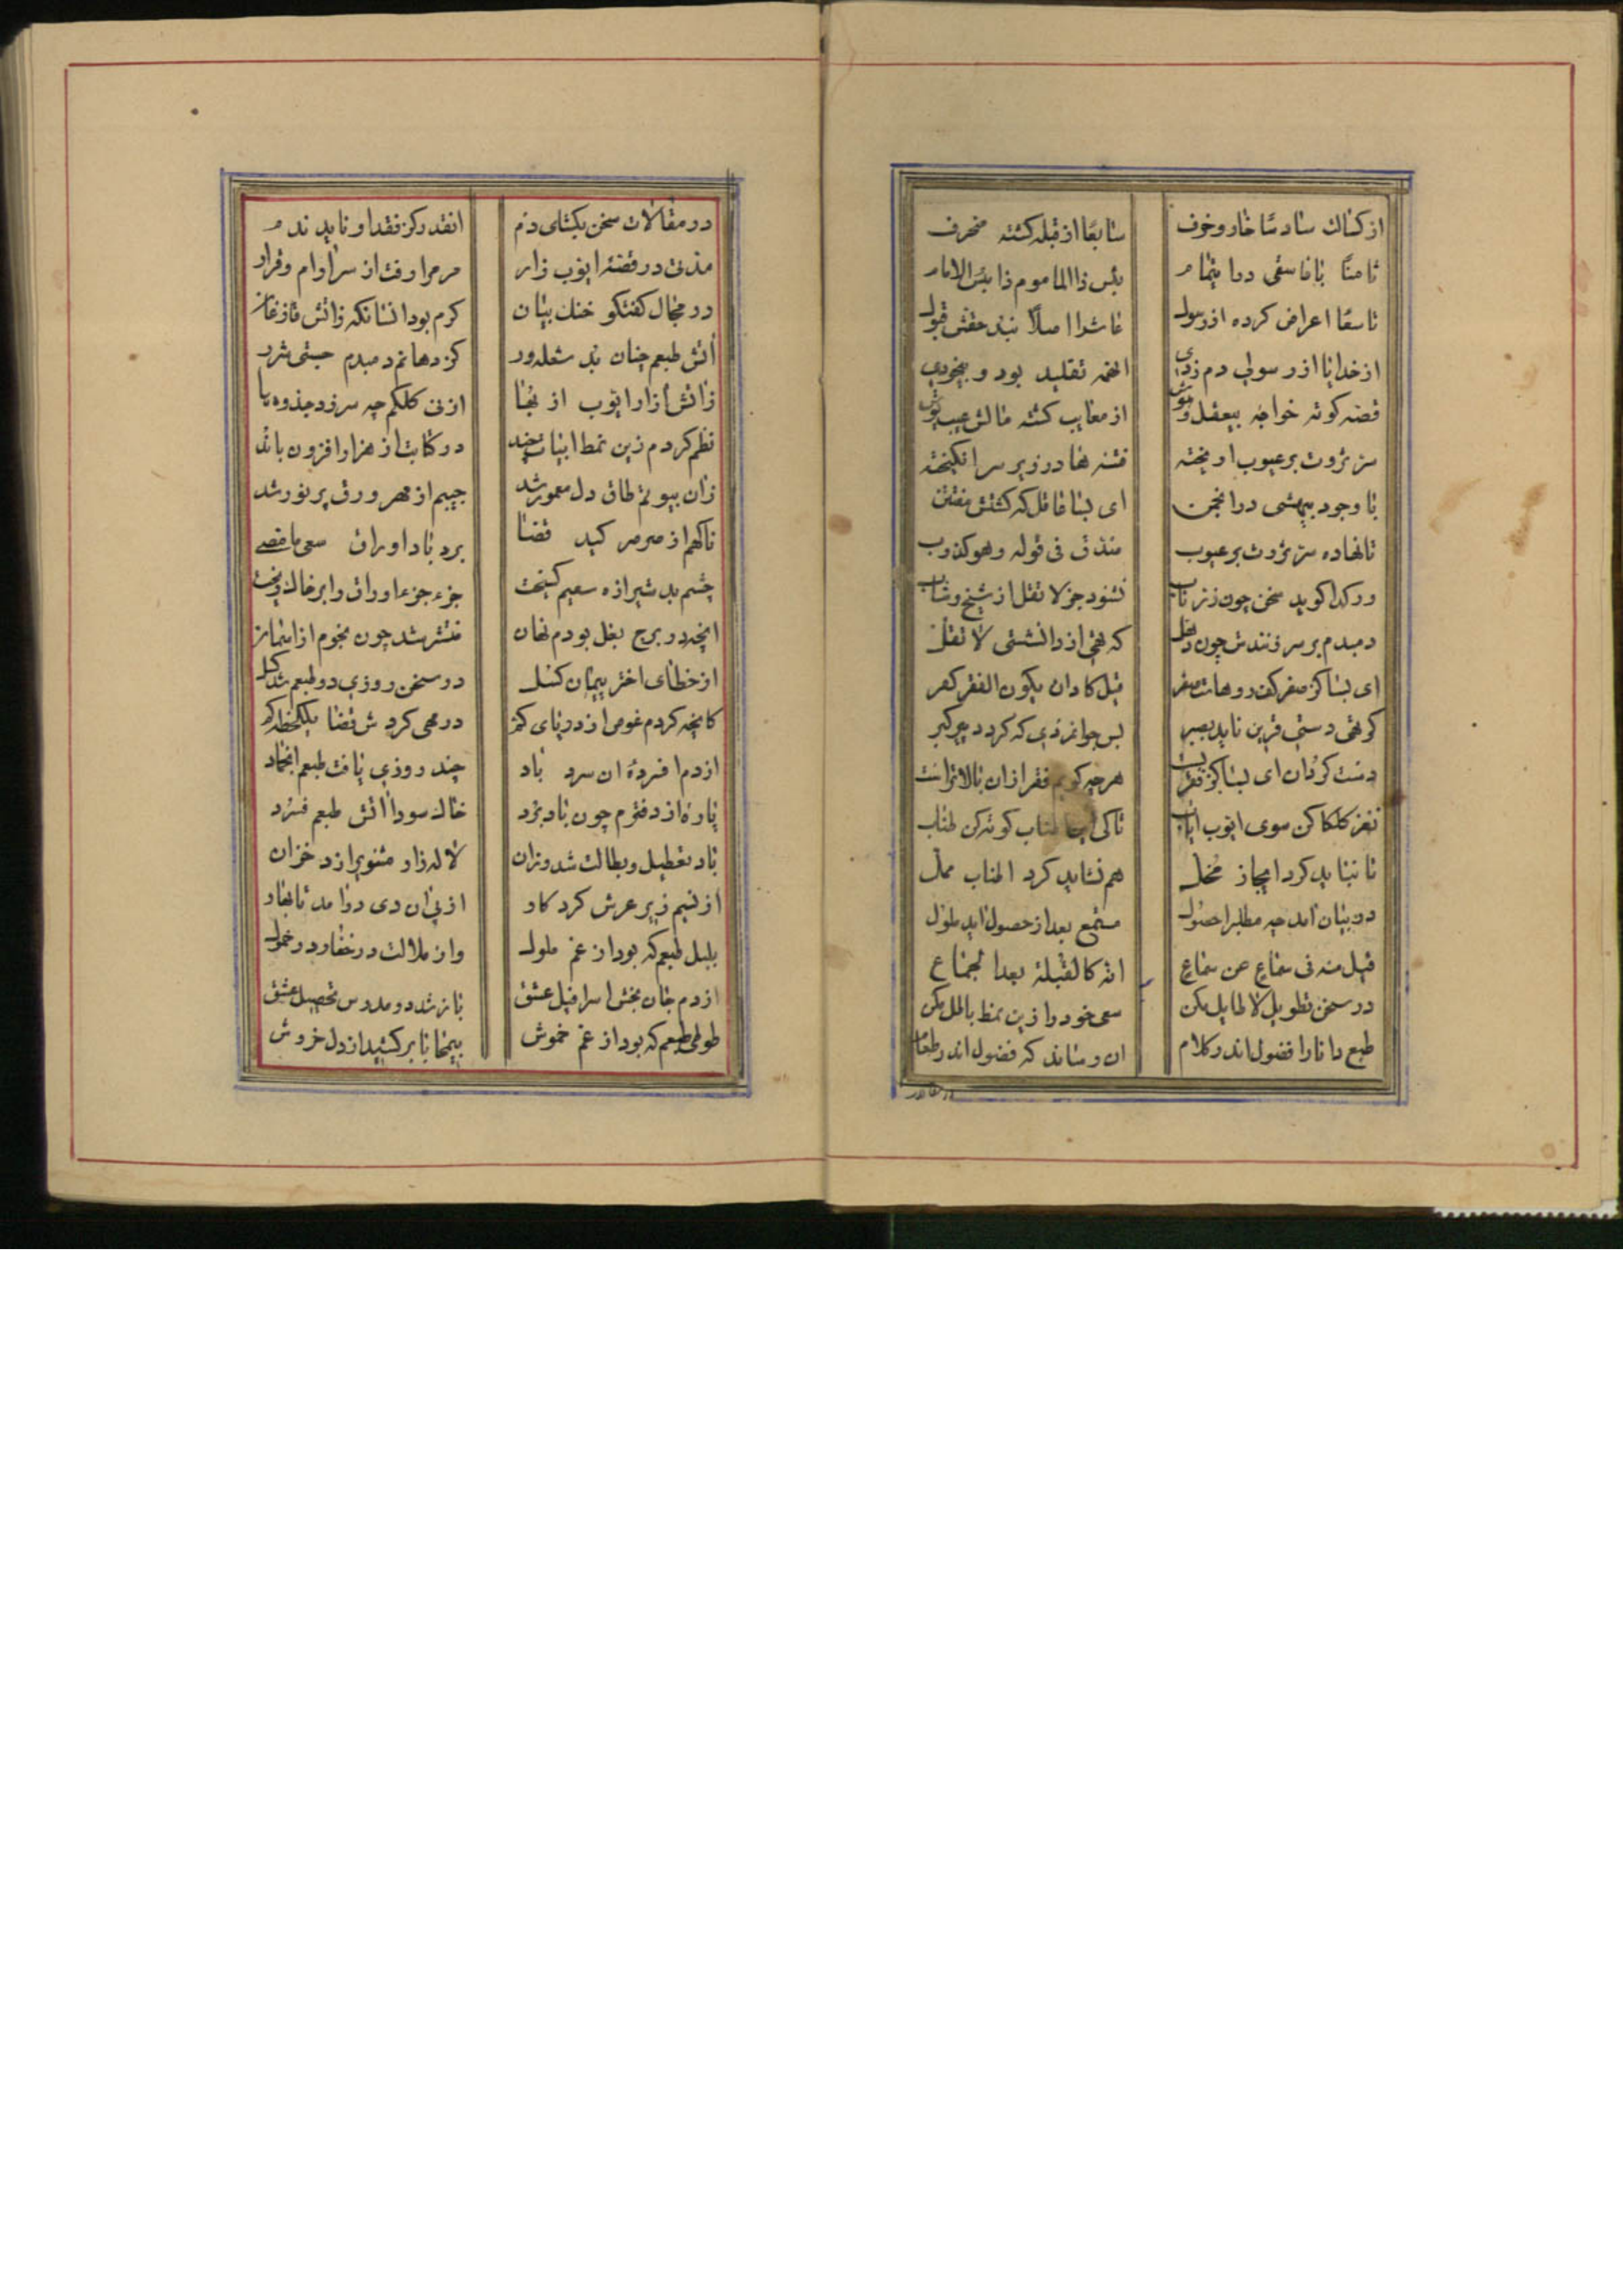 از کسالت سادسًا خار و خوف سابعًا از قبله کشته منحرف
ثامنًا با فاسقی در ایتمام بئس ذا الماموم ذا بئس الامام
تاسعًا اعراض کرده از رسول عاشرا اصلًا نبد حقش قبول
از خدا یا از رسولی دم زدی اینهمه تقلید بود و بیخودی
قصه کوته خواجه بیعقل و هوش از معایب کشته مالش عیب پوش
ستر ثروت بر عیوب اویخته فتنه ها در زیر سر انکیخته
با وجود بیهشی در انجمن ای بسا عاقل که کشتش مفتتن
تا نهاده ستر ثروت بر عیوب صدق فی قوله وهو کذوب
ور کدا کوید سخن چون زر ناب نشنود جز لا تقل از شیخ و شاب
دمبدم بر سر زنندش چون دهل که تهی از دانشستی لا تقل
ای بسا کز صفر کف در وهابت صفر قیل کاد ان یکون الفقر کفر
کز تهی دستی قرین ناید بصبر بس جوانمردی که کردد پیر کبر
دست کردان ای بسا کز فقر هرچه کویم فقر ازان بالاتر است
نغز کلکا کن سوی ایوب ایاب تا کی اطناب کوته کن طناب
تا نباید کرد ایجاز مخل هم نشاید کرد اطناب ممل
در بیان امد چه مطلب را حصول مستمع بعد از حصول اید ملول
قیل منه فی سماع عن سماع انه کالقبلة بعد الجماع
در سخن تطویل لا طایل مکن سعی خود را زین نمط باطل مکن
طبع دانا را فضول اندر کلام ان رساند که فضول اندر طعام
در مقالات سخن یکتای دم انقدر کز فقد او ناید ندم
مدتی در قصهٔ ایوب زار مر مرا رفت از سر ارام و قرار
در مجال کفتکو خنک بیان کرم بود انسانکه زاتش
اتش طبعم چنان بد شعله ور کز دهانم دمبدم جستی شرر
زاتش ازار ایوب از بجا از نی کلکم چه سر زد جذوه ها
نظم کردم زین نمط ابیات چند در کتابت از هزار افزون باند
زان بیوتم طاق دل معمور شد جیبم از مهر ورق پر نور شد
ناکهم از صرصر کید قضا برد باد اوراق سعی ما مضی
چشم بد شیرازه سعیم کسیخت جزء جزء اوراق را بر خاک ریخت
انچه در برج بغل بودم نهان منتشر شد چون نجوم از
از خطای اختر پیمان کسل در سخن روزی دو طبعم شد کسل
کانچه کردم غوص از دریای کنز در همی کردش قضا
از دم افسردهٔ ان سرد باد چند روزی یافت طبعم انجماد
پارهٔ از دفترم چون باد برد خاک سودا اتش طبعم فسرد
باد تعطیل و بطالت شد وزان لاله زار مثنوی را زد خزان
از نسیم زیر عرش کردکار از پی ان دی در امد نابهار
بلبل طبعم که بود از غم ملول وان ملالت در خفا و در خمول
از دم جان بخش اسرافیل عشق باز شد در مدرس تحصیل عشق
طوطی طبعم که بود از غم خموش بیمحابا بر کشید از دل خروش